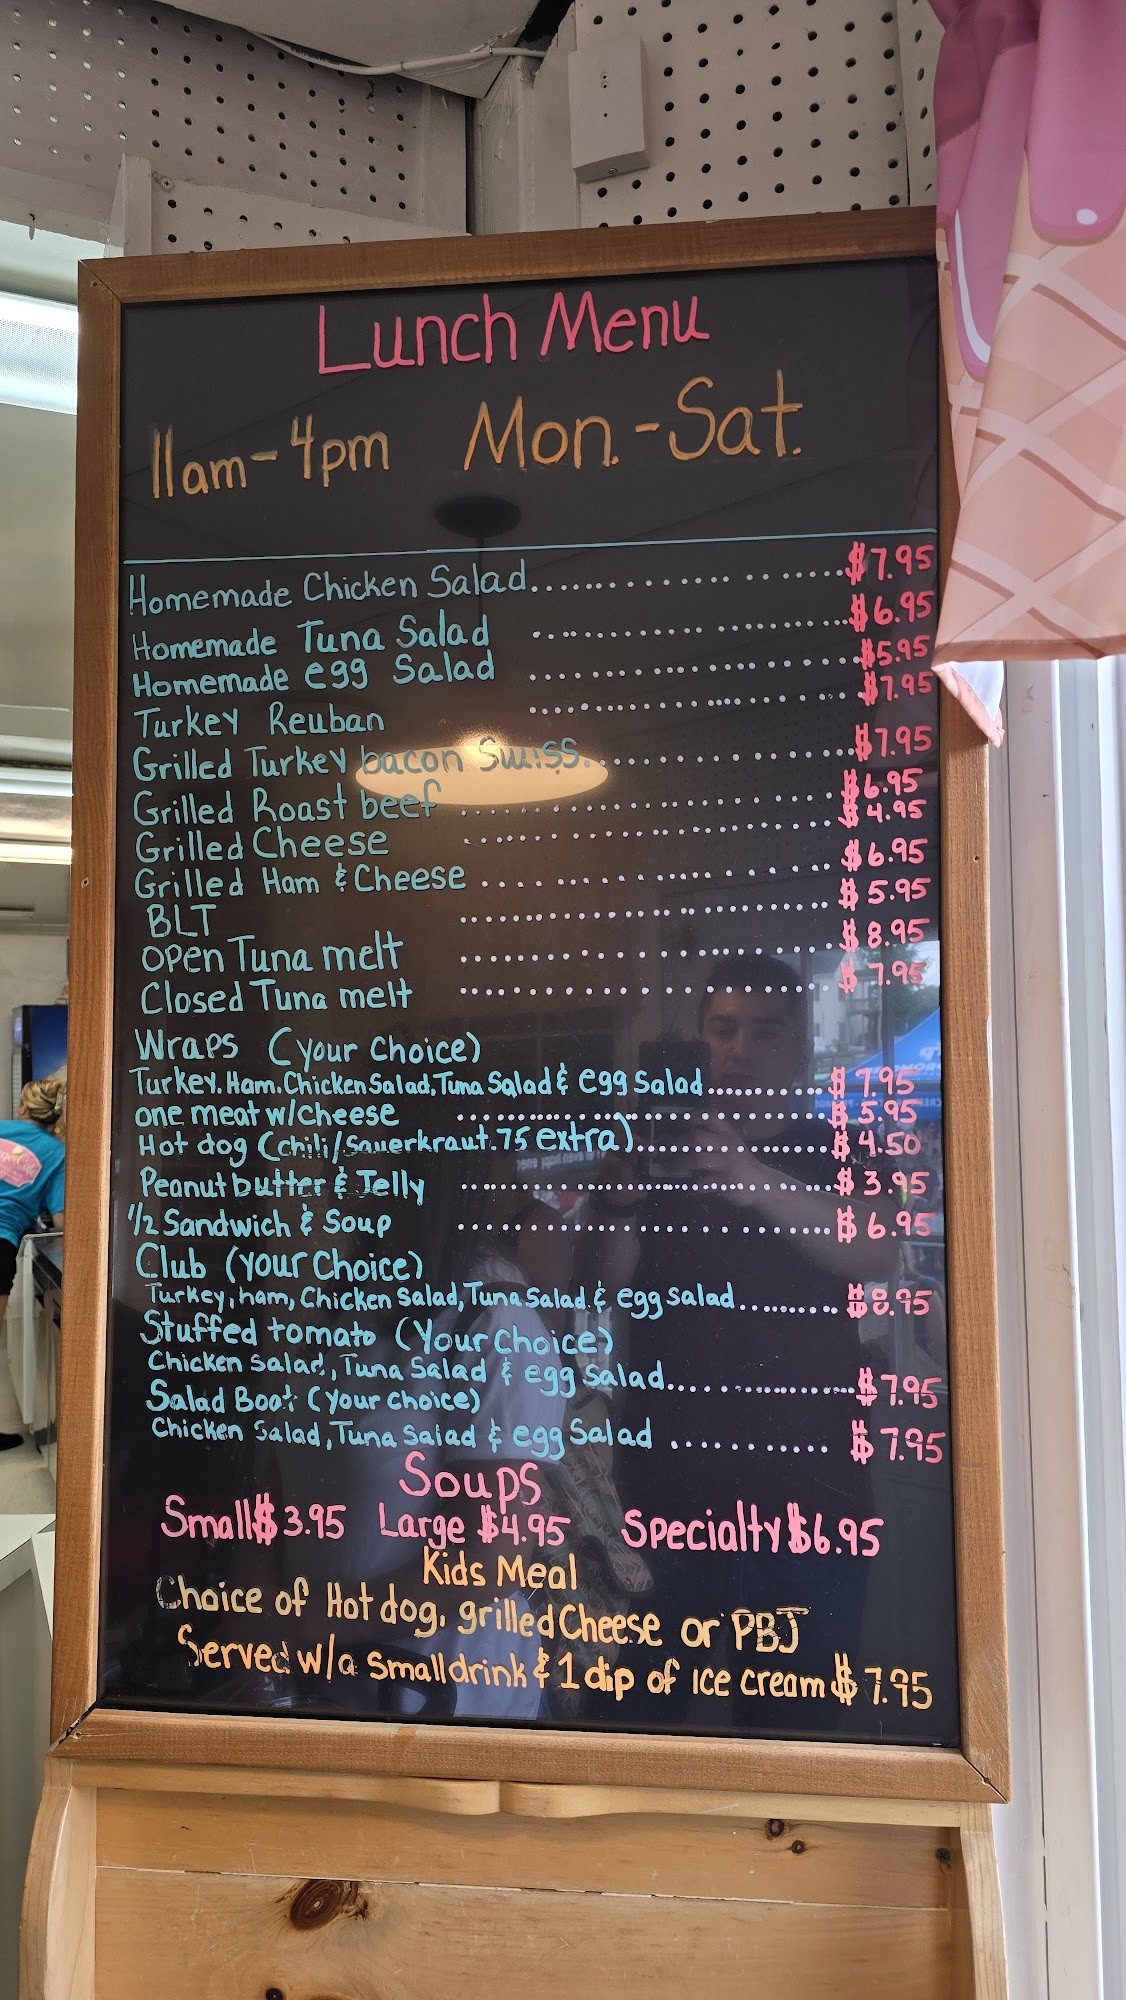 Lunch Menu
11am-4pm Mon.-Sat.
Homemade Chicken Salad $7.95
Homemade Tuna Salad $6.95
Homemade egg Salad $5.95
Turkey Reuban $7.95
Grilled Turkey bacon Swiss $7.95
Grilled Roast beef $6.95
Grilled Cheese $4.95
Grilled Ham & Cheese $6.95
BLT $5.95
Open Tuna melt $8.95
Closed Tuna melt $7.95
Wraps (your Choice)
Turkey. Ham. Chicken Salad, Tuna Salad & egg Salad $7.95
one meat w/Cheese $5.95
Hot dog (chili/Sauerkraut .75 extra) $4.50
Peanut butter & Jelly $3.95
1/2 Sandwich & Soup $6.95
Club (your Choice)
Turkey, ham, Chicken Salad, Tuna Salad & egg salad $8.95
Stuffed tomato (Your Choice)
Chicken Salad, Tuna Salad & egg Salad $7.95
Salad Boat (your Choice)
Chicken Salad, Tuna Salad & egg Salad $7.95
Soups
Small $3.95 Large $4.95 Specialty $6.95
Kids Meal
Choice of Hot dog, grilled Cheese or PBJ
Served w/a Small drink & 1 dip of ice cream $7.95